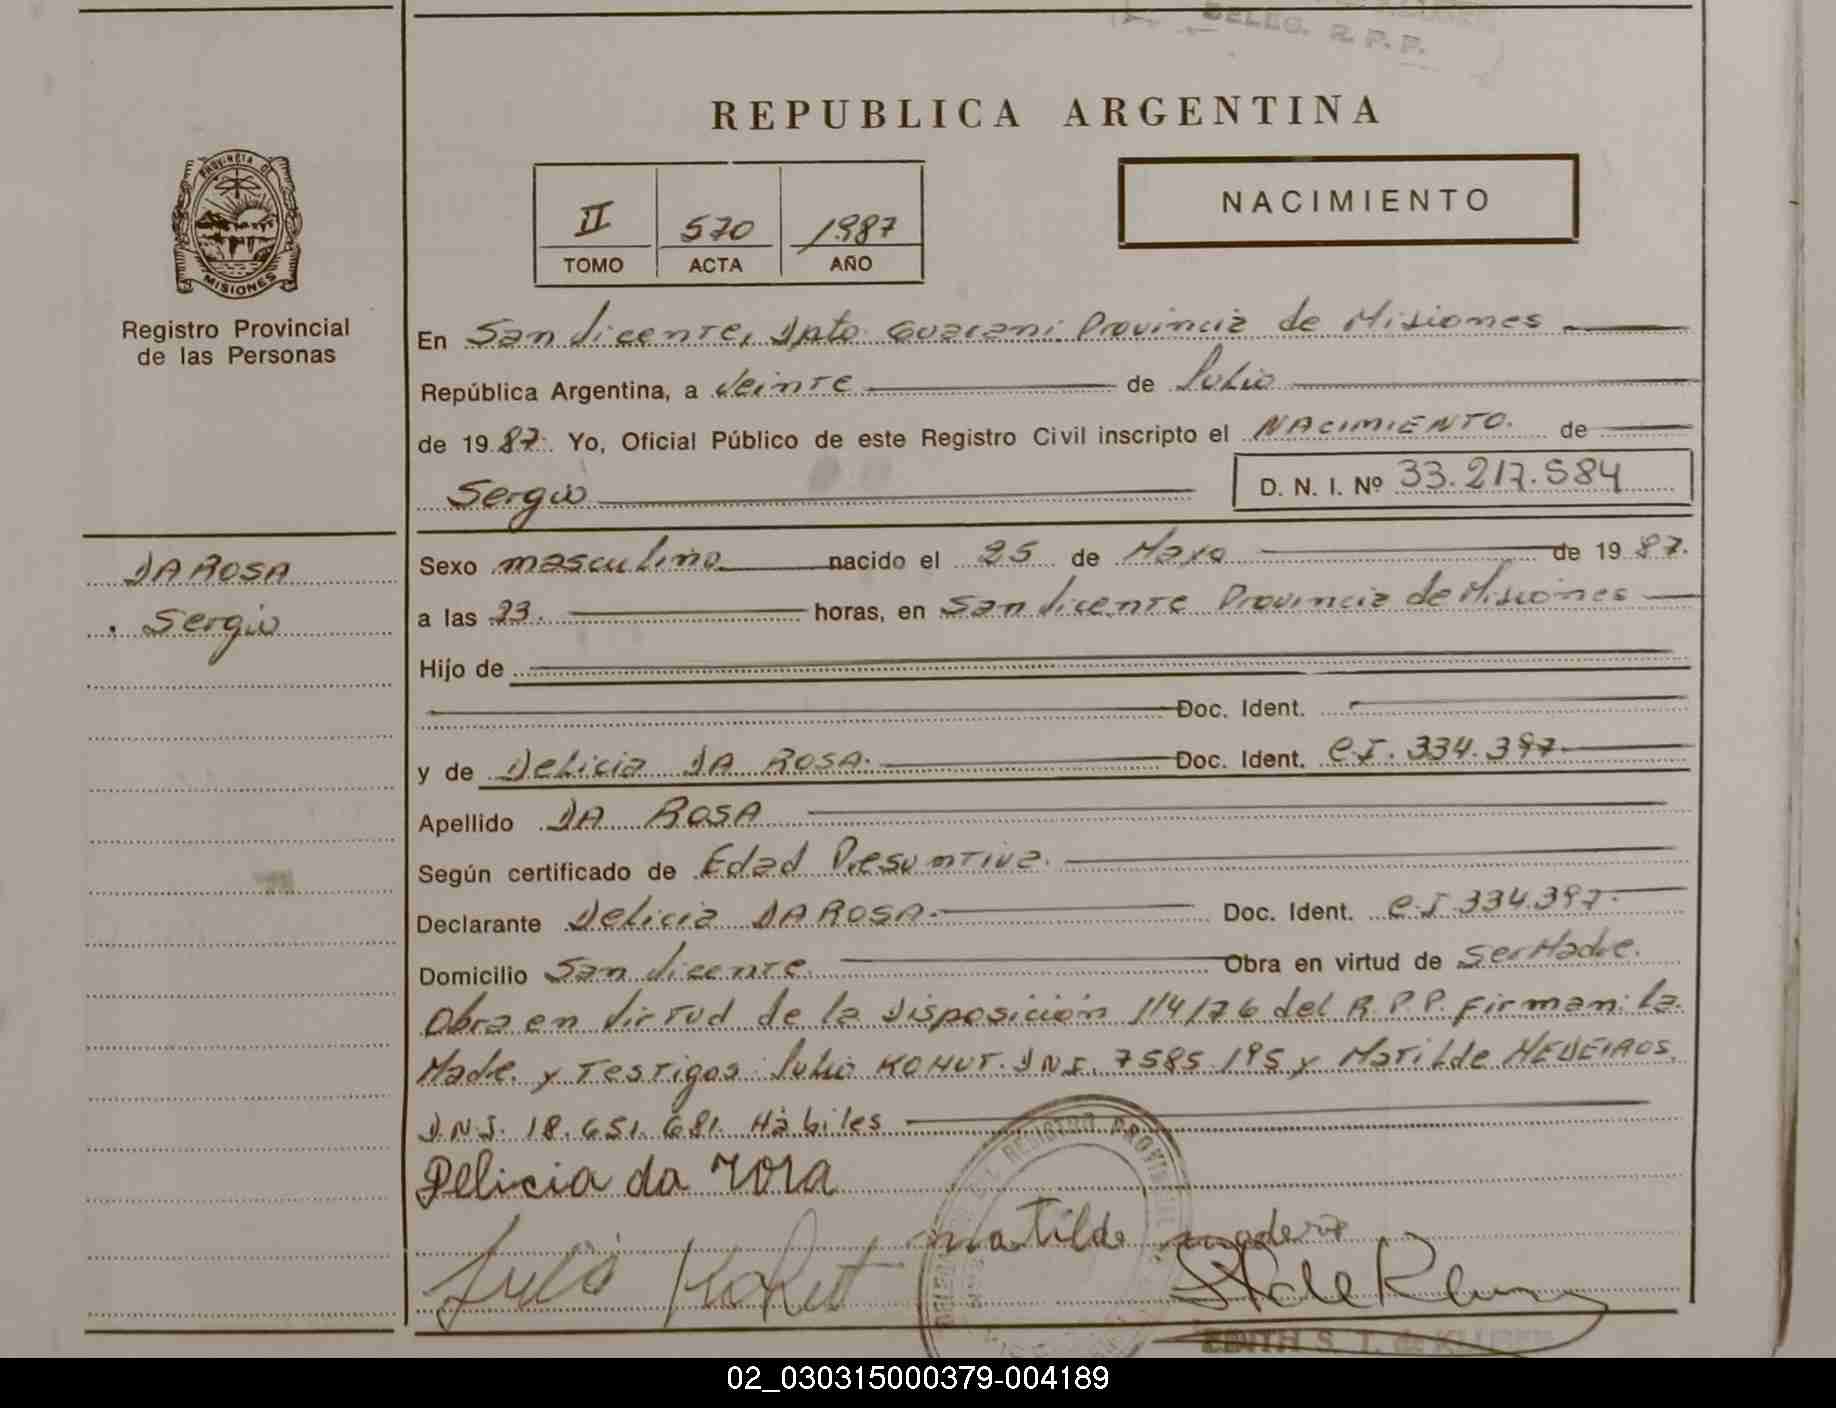 DELEG. R. P. P.
REPUBLICA ARGENTINA
PROVINCIA DE
MISIONES
Registro Provincial
de las Personas
II 570 1987
TOMO ACTA AÑO
NACIMIENTO
En San Vicente, Dpto Guarani Provincia de Misiones
República Argentina, a Veinte de Julio
de 1987. Yo, Oficial Público de este Registro Civil inscripto el NACIMIENTO. de
Sergio D. N. I. Nº 33.217.584
DA ROSA
Sergio
Sexo masculino nacido el 25 de Mayo de 1987.
a las 23. horas, en San Vicente Provincia de Misiones
Hijo de
Doc. Ident.
y de Delicia DA ROSA. Doc. Ident. C.I. 334.397
Apellido DA ROSA
Según certificado de Edad Presuntiva.
Declarante Delicia DA ROSA. Doc. Ident. C.I 334.397.
Domicilio San Vicente. Obra en virtud de ser Madre.
Obra en Virtud de la Disposición 114/76 del R.P.P. Firman: la
Madre y Testigos: Julio KOHUT. D N I. 7585.195 y Matilde MEDEIROS.
D.N.I. 18.651.681. Hábiles
Delicia da rosa
Julio Kohut
Matilde
REGISTRO PROVINCIAL
EDITH S. T. de KLUGER
02_030315000379-004189